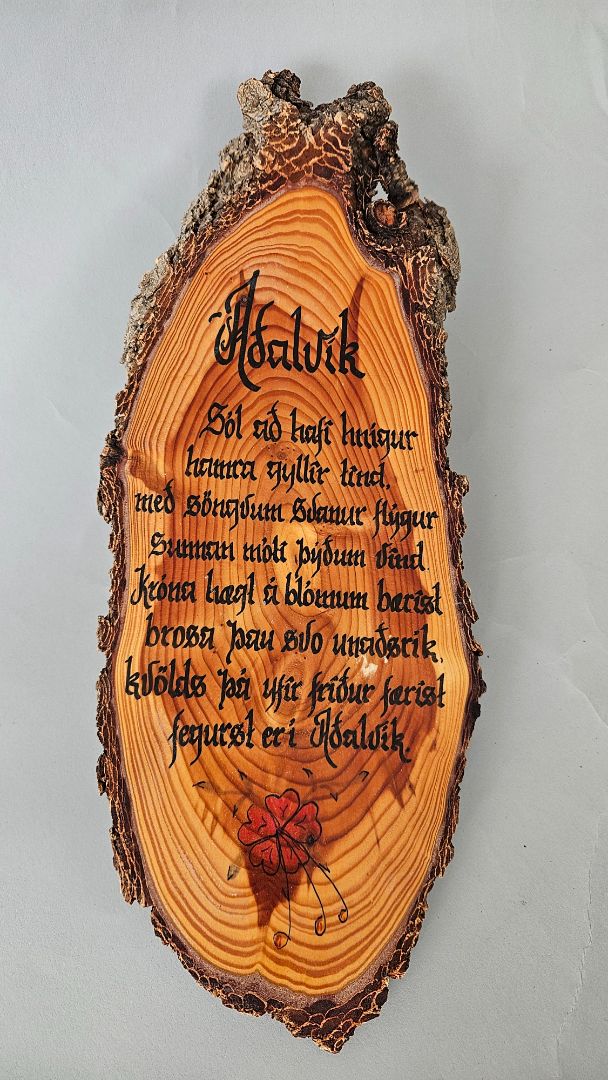 Aðalvík
Sól að hafi hnigur
hamra gyllir tind,
með söngvum svanur flýgur
sunnan móti þýðum vind.
Króna hægt á blómum bærist
brosa þau svo unaðsrik,
kvölds þá yfir friður færist
fegurst er i Aðalvik.